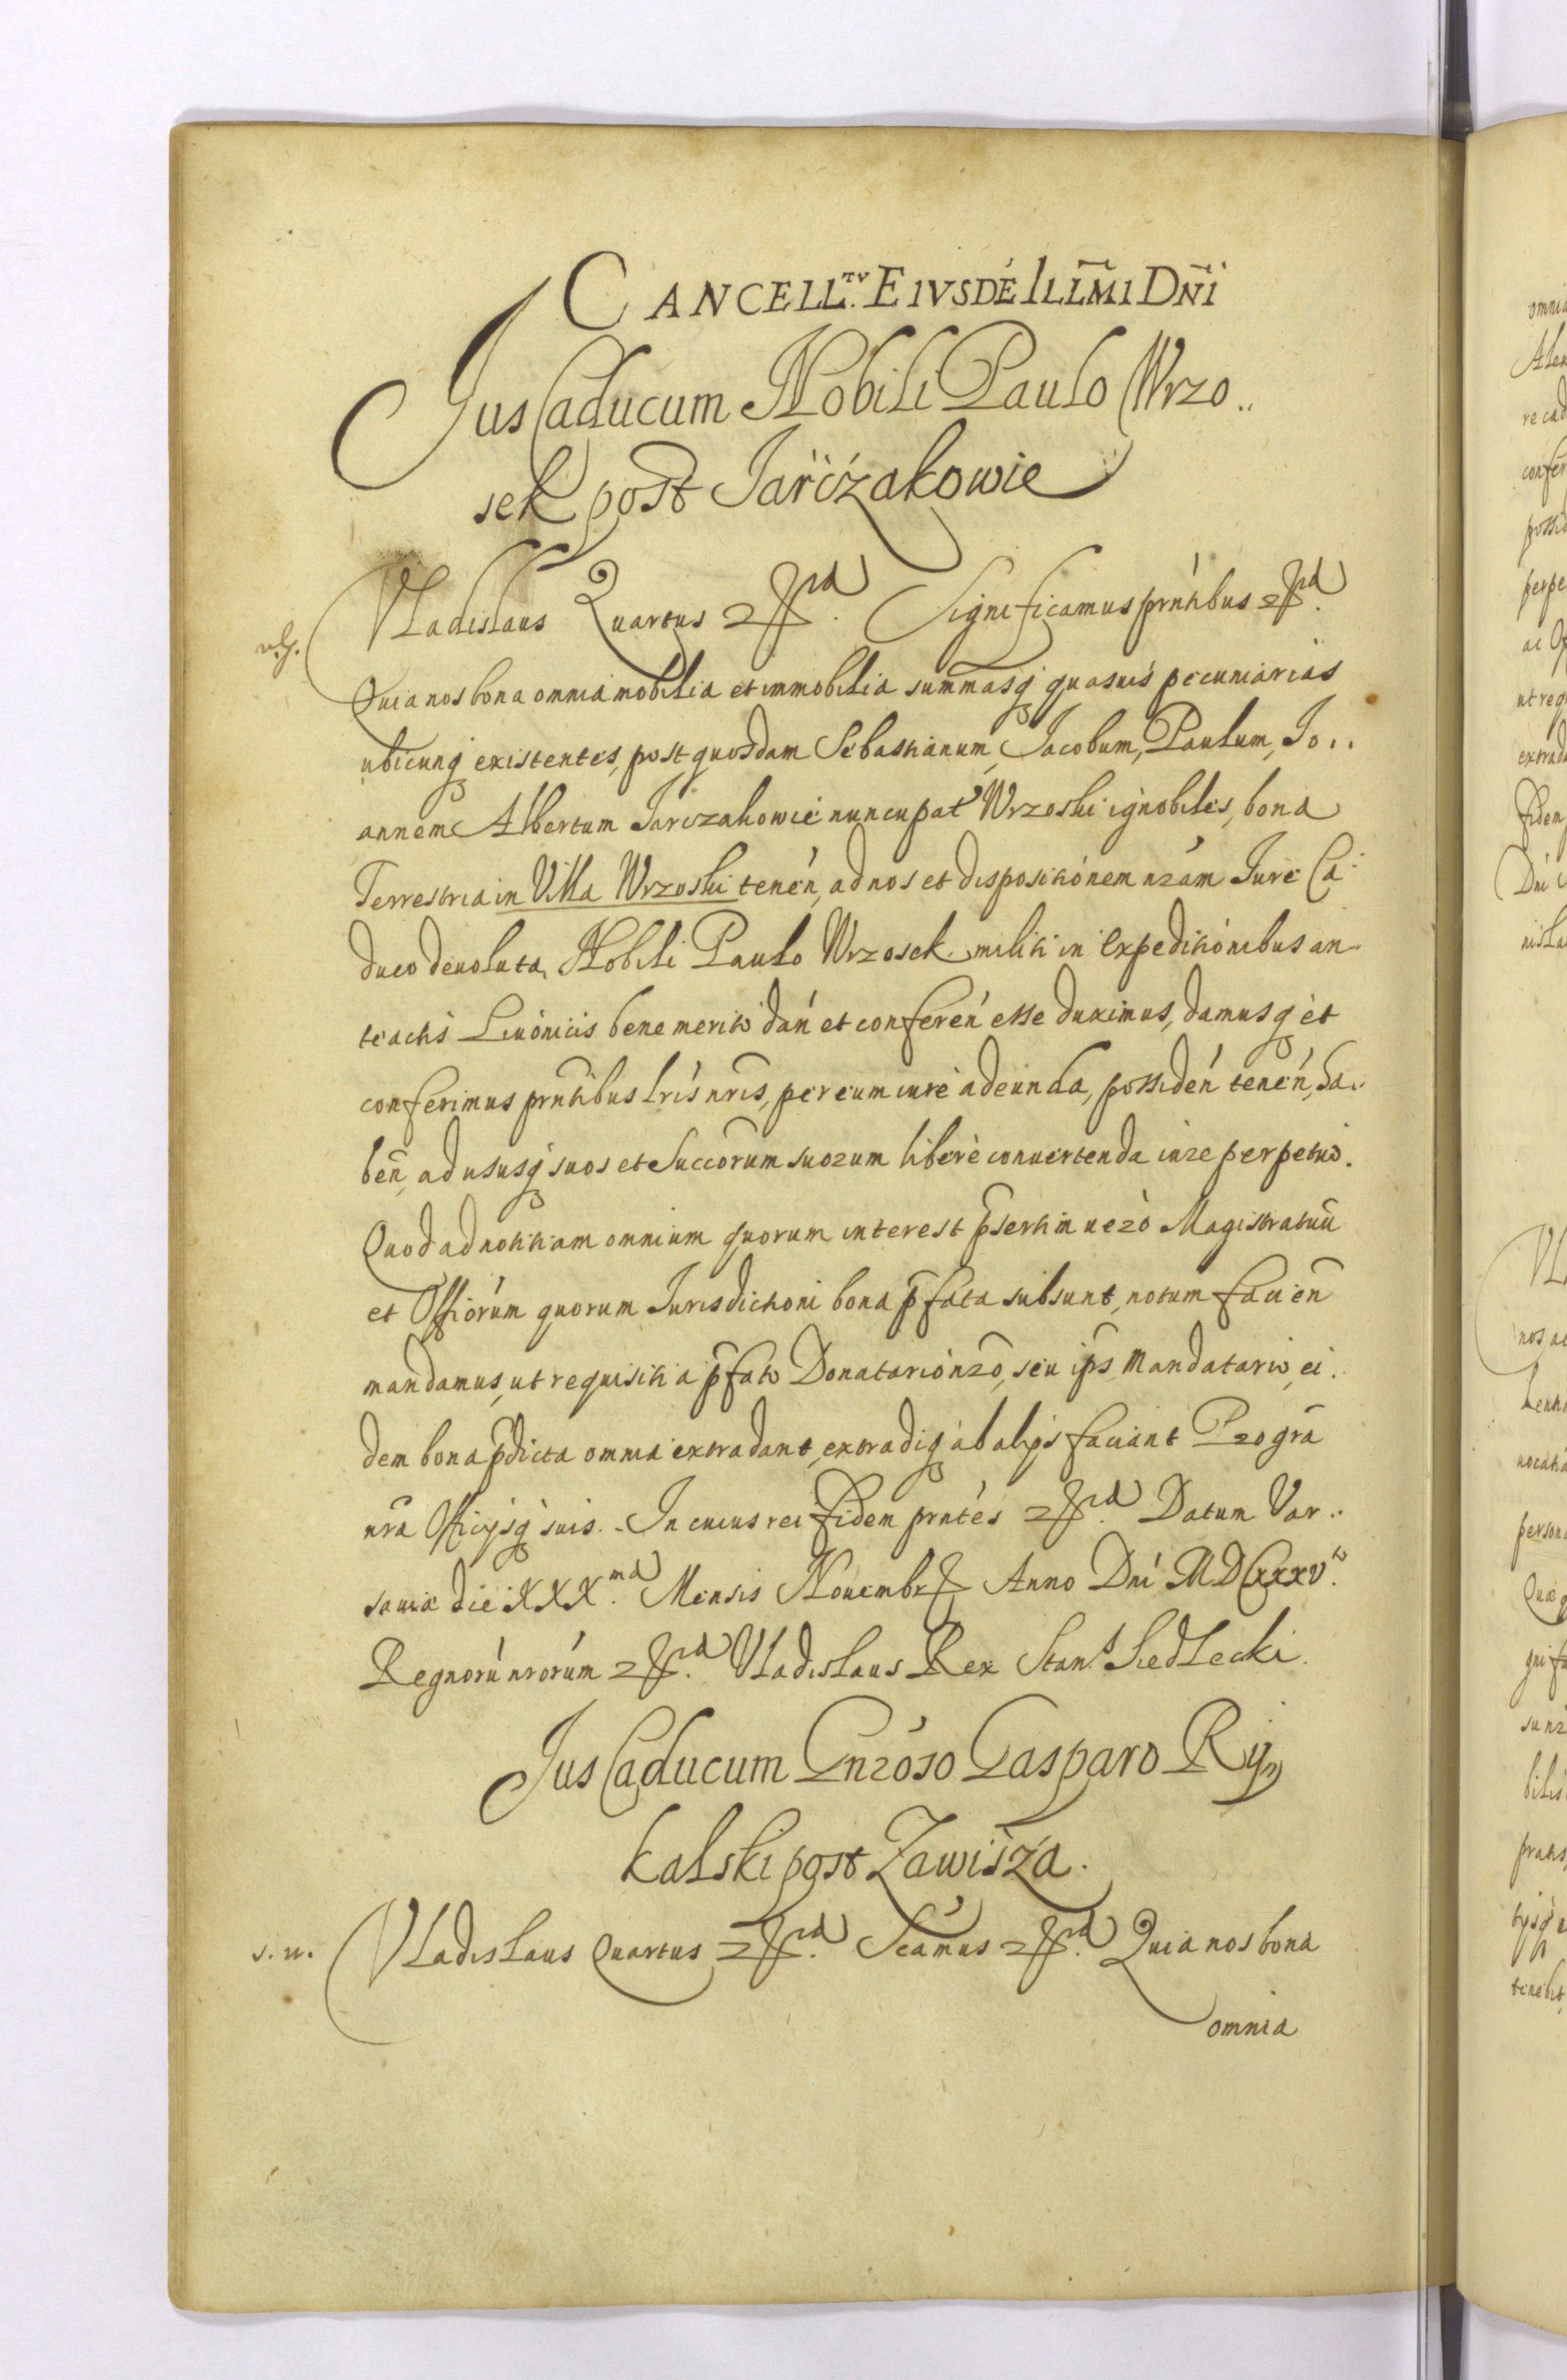 CANCELL.TV EIVSDÉ ILL͠MI DÑI
Jus Caducum Nobili Paulo Wrzo..
sek post Jarczakowie
Vladislaus Quartus etc. Significamus prñtibus etc.
Quia nos bona omnia mobilia et immobilia summasq́ quasuis pecuniarias
ubicunq́ existentes, post quosdam Sebastianum, Jacobum, Paulum, Jo..
annem Albertum Jarczakowie nuncupat Wrzoski ignobiles, bona
Terrestria in Villa Wrzoski teneń, ad nos et dispositiónem nrám Jure Ca
duco deuoluta, Nobili Paulo Wrzosek militi in Expeditiónibus an
teactis Liuónicis bene merito dań et confereń esse duximus, damusq́ et
conferimus prñtibus lrís nrís, per eum iure adeunda, possideń teneń, ha..
beñ, ad ususq́ suos et Succorum suorum liberè conuertenda iure perpetuo.
Quod ad notitiam omnium quorum interest p̃sertim uerò Magistratuũ
et Offiórum quorum Jurisdictioni bona p̃fata subsunt, notum facieñ
mandamus, ut requisiti a p̃fato Donatario nrõ, seu ips Mandatario, ei..
dem bona p̃dicta omnia extradant, extradiq́ ab alijs faciant Pro grã
nrã Officijsq́ suis. In cuius rei fidem prntés etc. Datum Var..
sauiæ die XXX.ma Mensis Nouembr Anno Dní MDCXXXV.to
Regnorú nrorúm etc. Vladislaus Rex Stan.s Siedlecki.
Jus Caducum Gnróso Gasparo Ry
kalski post Zawisza.
s. n. Vladislaus Quartus etc. Scámus etc. Quia nos bona
omnia